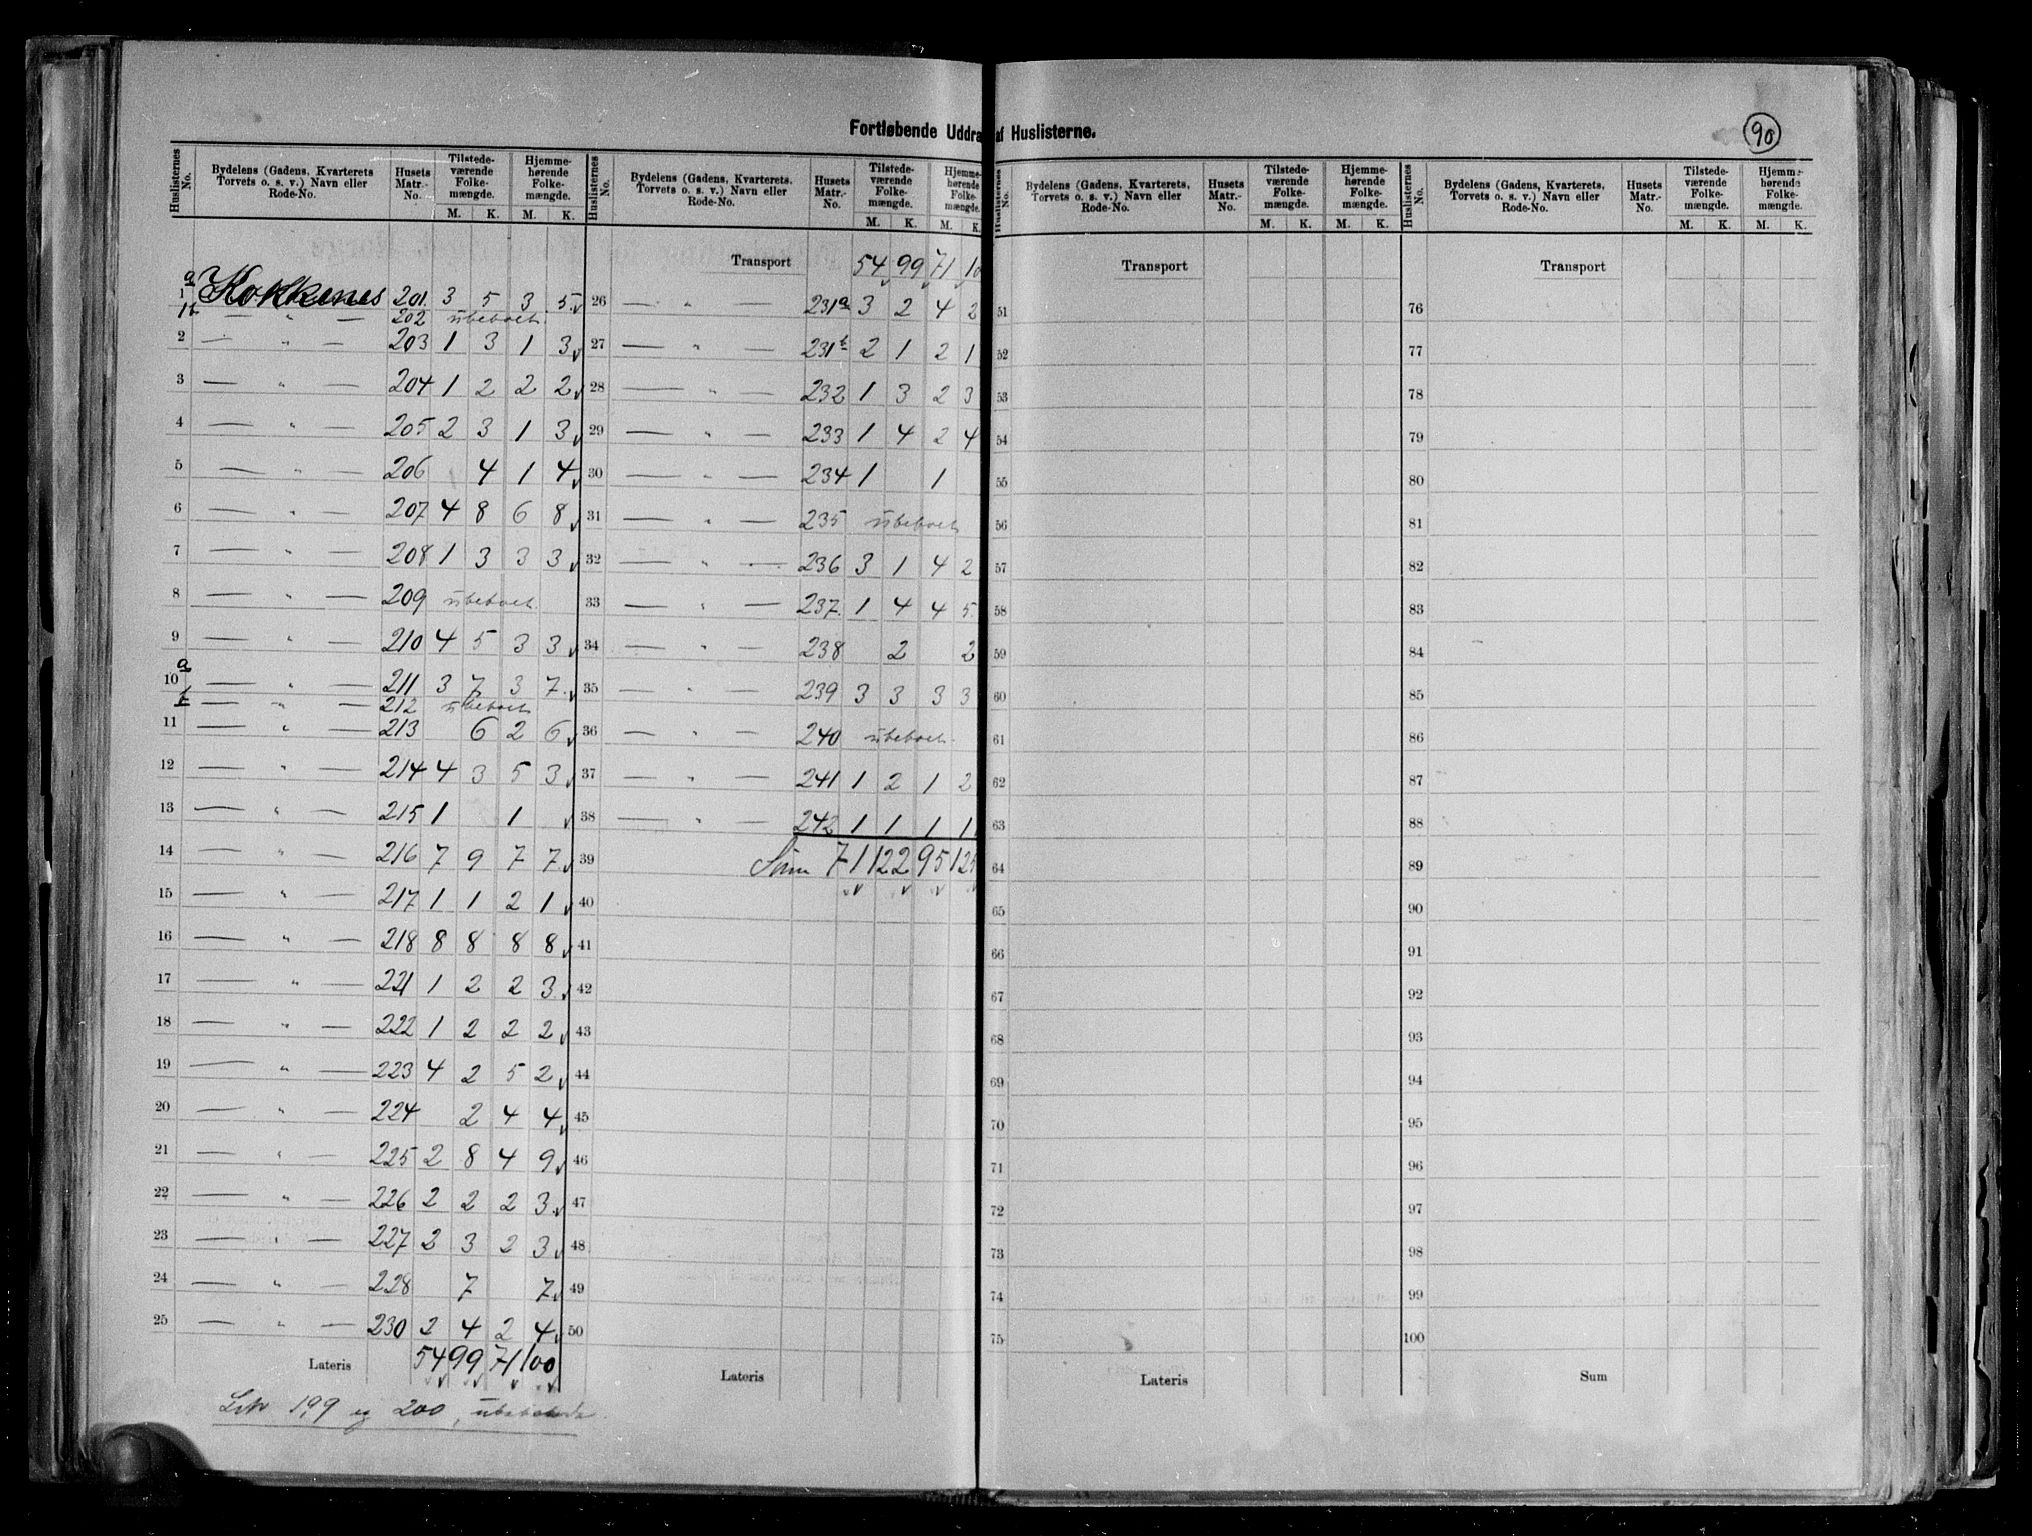 Fortløbende Uddra af Huslisterne.
90
Huslisternes No. | Bydelens (Gadens, Kvarterets Torvets o. s. v.) Navn eller Rode-No. | Husets Matr.-No. | Tilstedeværende Folkemængde. M. K. | Hjemmehørende Folkemængde. M. K.
a 1 Kokkenes 201 3 5 3 5
1b — " — 202 ubeboet
2 — " — 203 1 3 1 3
3 — " — 204 1 2 2 2
4 — " — 205 2 3 1 3
5 — " — 206 4 1 4
6 — " — 207 4 8 6 8
7 — " — 208 1 3 3 3
8 — " — 209 ubeboet
9 — " — 210 4 5 3 3
a 10 — " — 211 3 7 3 7
b — " — 212 ubeboet
11 — " — 213 6 2 6
12 — " — 214 4 3 5 3
13 — " — 215 1 1
14 — " — 216 7 9 7 7
15 — " — 217 1 1 2 1
16 — " — 218 8 8 8 8
17 — " — 221 1 2 2 3
18 — " — 222 1 2 2 2
19 — " — 223 4 2 5 2
20 — " — 224 2 4 4
21 — " — 225 2 8 4 9
22 — " — 226 2 2 2 3
23 — " — 227 2 3 2 3
24 — " — 228 7 7
25 — " — 230 2 4 2 4
Lateris 54 99 71 100
199 og 200, ubeboede
Huslisternes No. | Bydelens (Gadens, Kvarterets, Torvets o. s. v.) Navn eller Rode-No. | Husets Matr.-No. | Tilstedeværende Folkemængde. M. K. | Hjemmehørende Folkemængde. M. K.
Transport 54 99 71 10
26 — " — 231a 3 2 4 2
27 — " — 231b 2 1 2 1
28 — " — 232 1 3 2 3
29 — " — 233 1 4 2 4
30 — " — 234 1 1
31 — " — 235 ubeboet
32 — " — 236 3 1 4 2
33 — " — 237 1 4 4 5
34 — " — 238 2 2
35 — " — 239 3 3 3 3
36 — " — 240 ubeboet
37 — " — 241 1 2 1 2
38 — " — 242 1 1 1 1
39 Sum 71 122 95 125
40
41
42
43
44
45
46
47
48
49
50
Lateris
Huslisternes No. | Bydelens (Gadens, Kvarterets, Torvets o. s. v.) Navn eller Rode-No. | Husets Matr.-No. | Tilstedeværende Folkemængde. M. K. | Hjemmehørende Folkemængde. M. K.
Transport
51
52
53
54
55
56
57
58
59
60
61
62
63
64
65
66
67
68
69
70
71
72
73
74
75
Lateris
Huslisternes No. | Bydelens (Gadens, Kvarterets, Torvets o. s. v.) Navn eller Rode-No. | Husets Matr.-No. | Tilstedeværende Folkemængde. M. K. | Hjemmehørende Folkemængde. M. K.
Transport
76
77
78
79
80
81
82
83
84
85
86
87
88
89
90
91
92
93
94
95
96
97
98
99
100
Sum